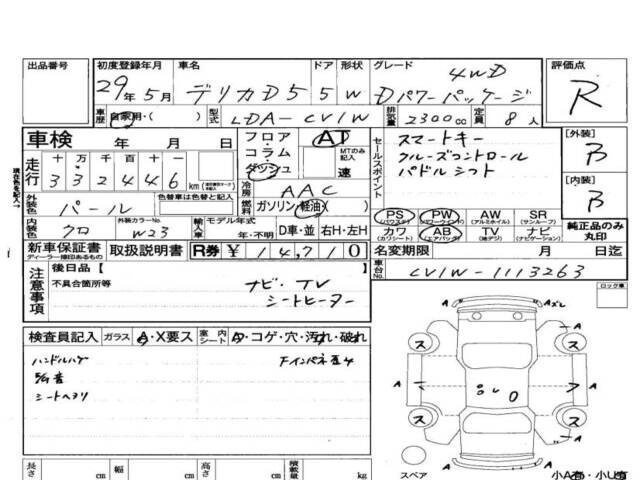 出品番号 初度登録年月 車名 ドア 形状 グレード 評価点
4WD
29年5月 デリカD5 5 W Dパワーパッケージ R
車歴 自家用・( ) 型式 LDA-CV1W 排気量 2300cc 定員 8人
車検 年 月 日
フロア・コラム・ダッシュ AT MTのみ記入 速
セールスポイント スマートキー
クルーズコントロール
パドルシフト
[外装] B
[内装] B
走行 十万千百十一
332446 km
冷房 AAC
燃料 ガソリン・軽油
外装色 パール 色替車は色替と記入
内装色 クロ 外装カラーNo. W23
輸入車 モデル年式 年・不明 D車・並 右H・左H
PS (パワステ) PW (パワーウィンド) AW (アルミホイル) SR (サンルーフ)
カワ (カワシート) AB (エアバッグ) TV (地デジ) ナビ (ナビゲーション)
純正品のみ丸印
新車保証書 ディーラー捺印あるもの 取扱説明書 R券 ¥ 14,710
名変期限 月 日迄
車台No. CV1W-1113263
注意事項 後日品【
不具合箇所等 ナビ・TV
シートヒーター
ロック車
検査員記入 ガラス A・X要ス 室内シート A・コゲ・穴・汚れ・破れ
ハンドルハゲ
シートヘタリ
A A
ス ス
A A
ス ス
A A
スペア
長さ cm 幅 cm 高さ cm 積載量 kg